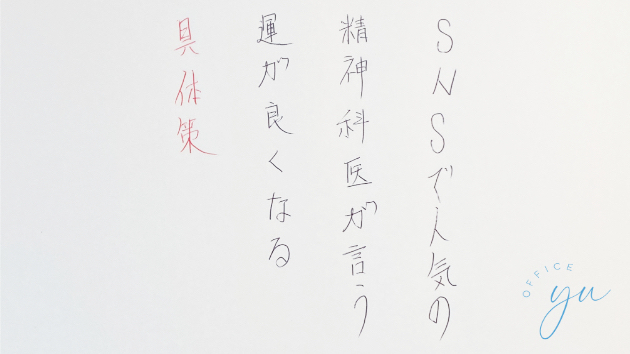 SNSで人気の
精神科医が言う
運が良くなる
具体策
OFFICE
yu